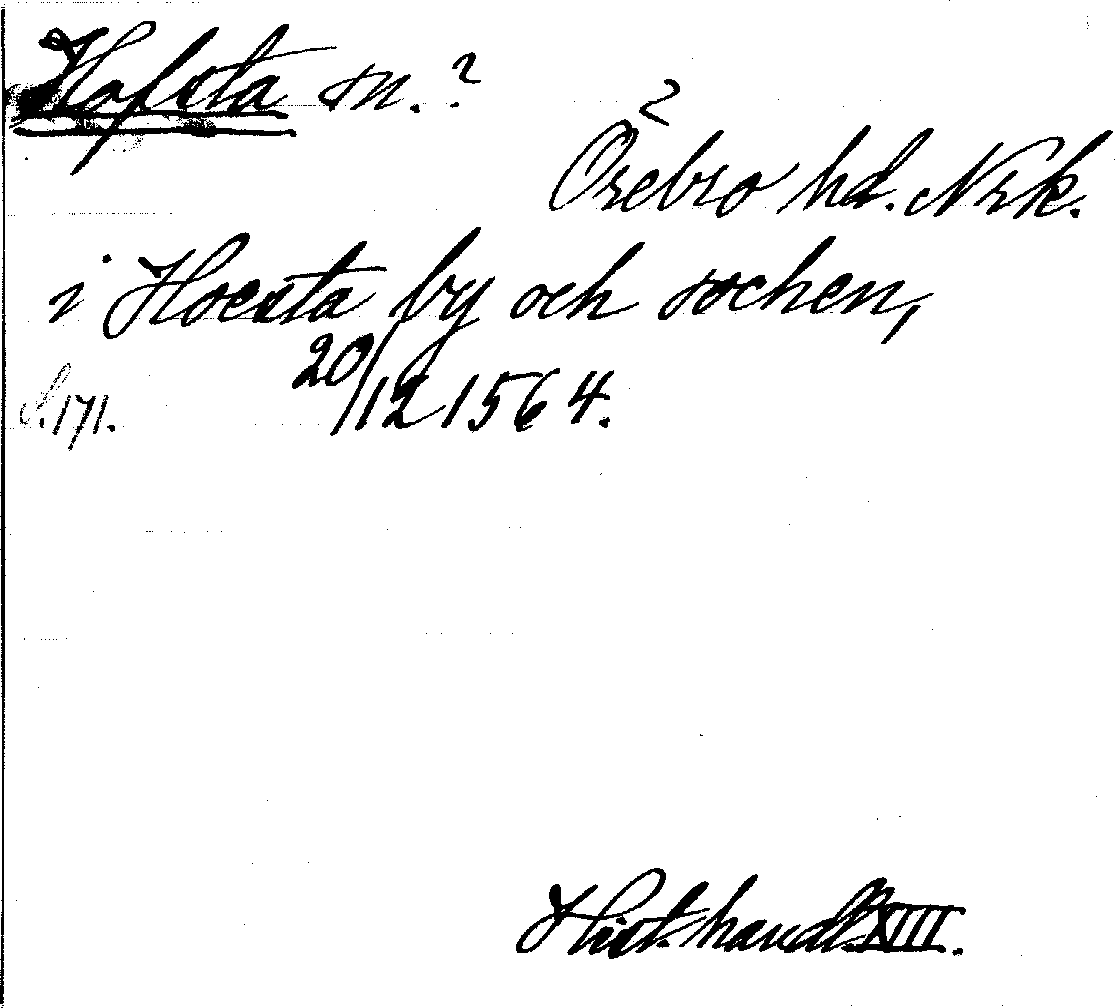 Hofsta sn.?
Örebro hd. Nrk.
i Hoesta by och sochen,
S. 171. 20/12 1564.
Hist. handl. XIII.